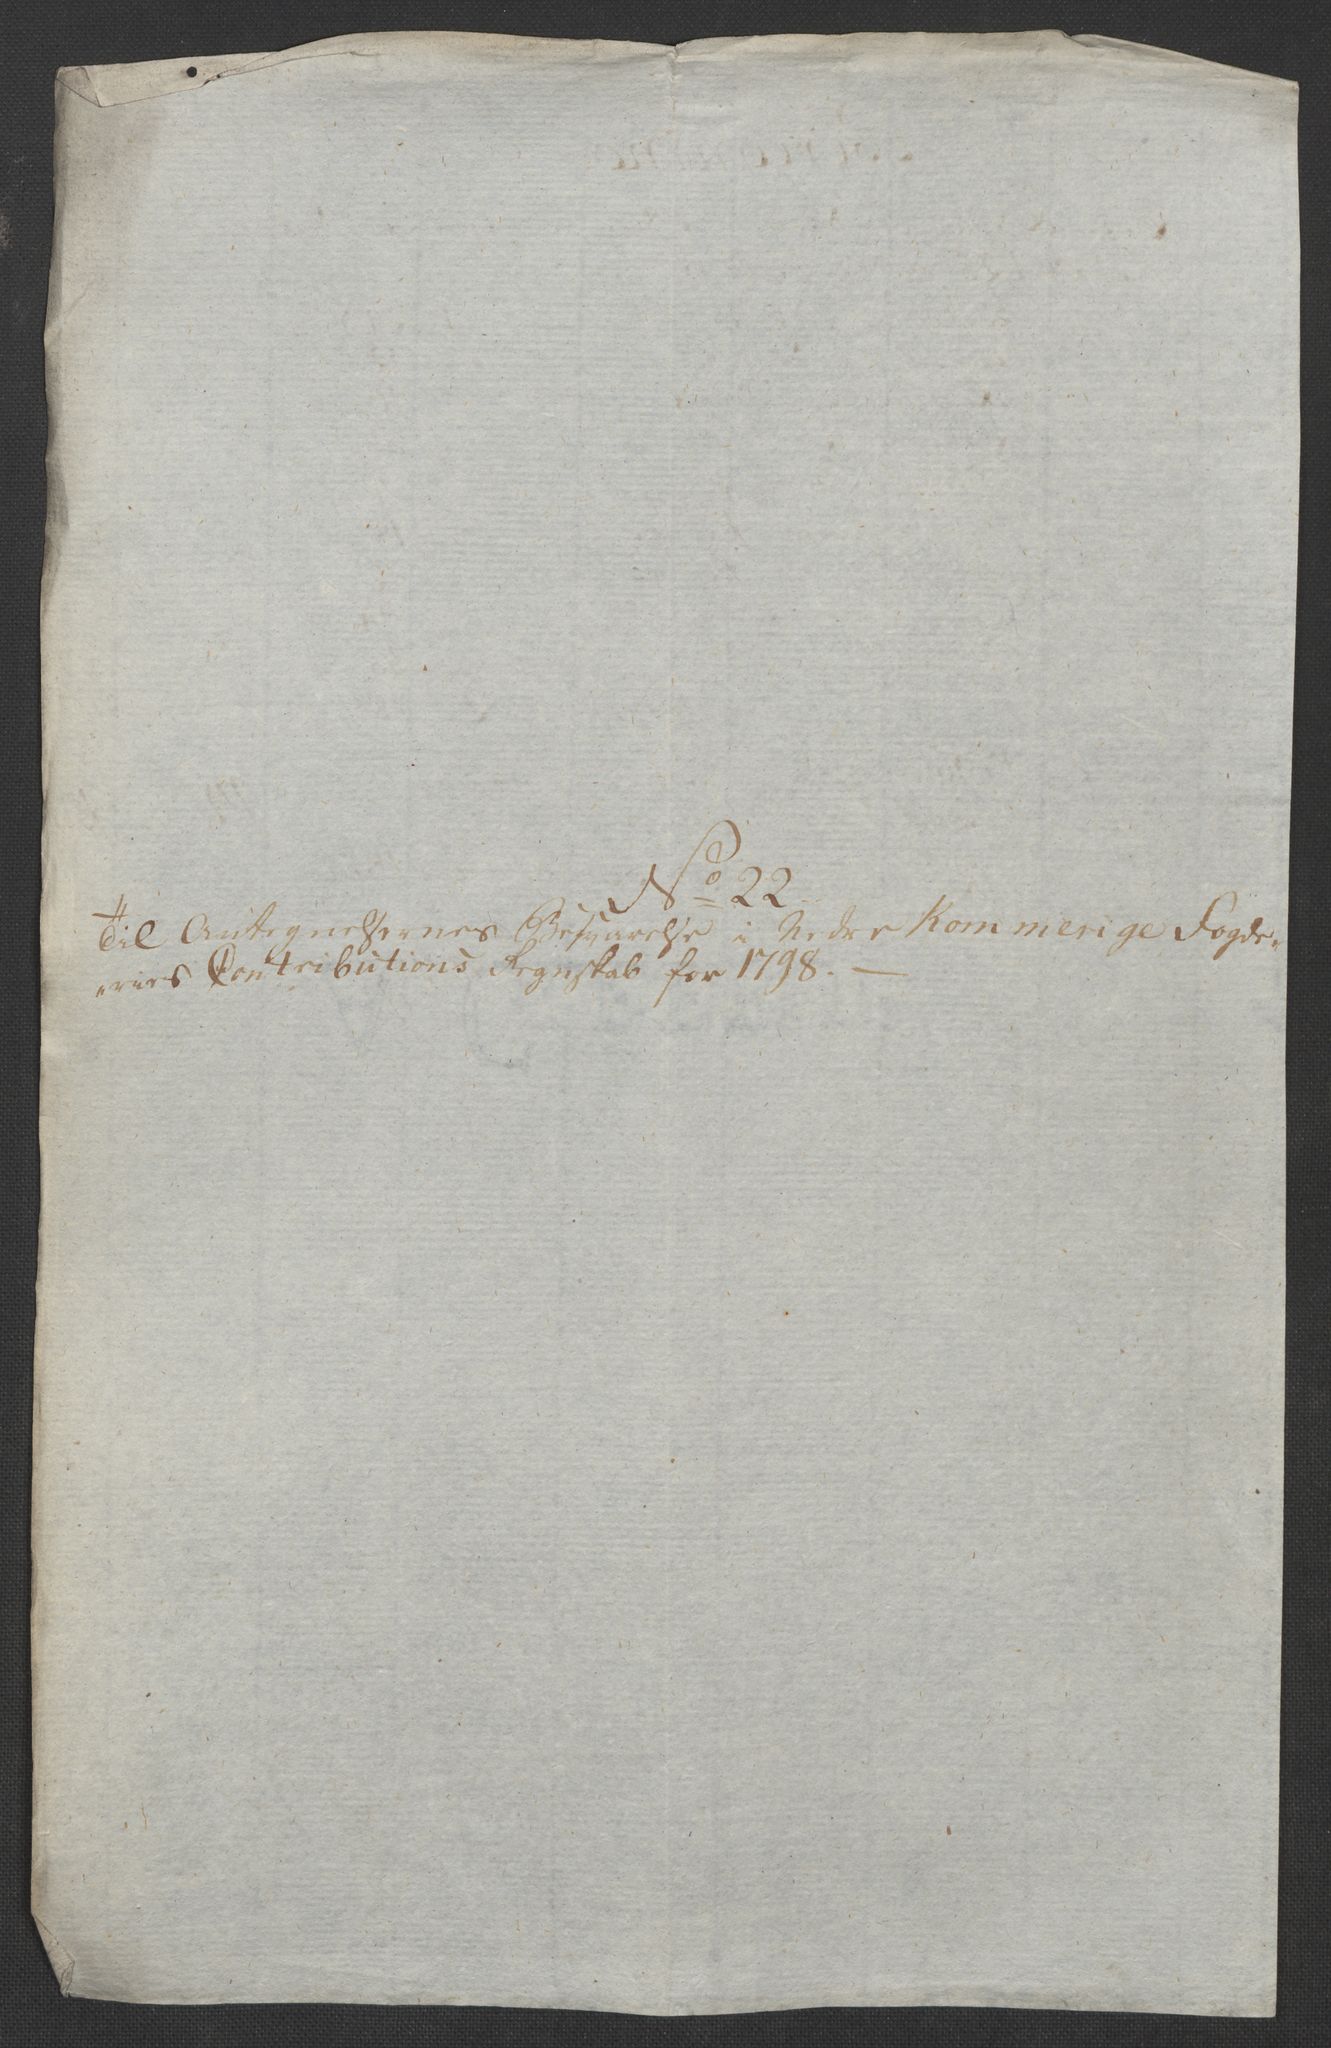 No 22
Til Antegnelsernes Besvarelse i Nedre Rommerige Fogde-
riets Contributions Regnskab for 1798. —